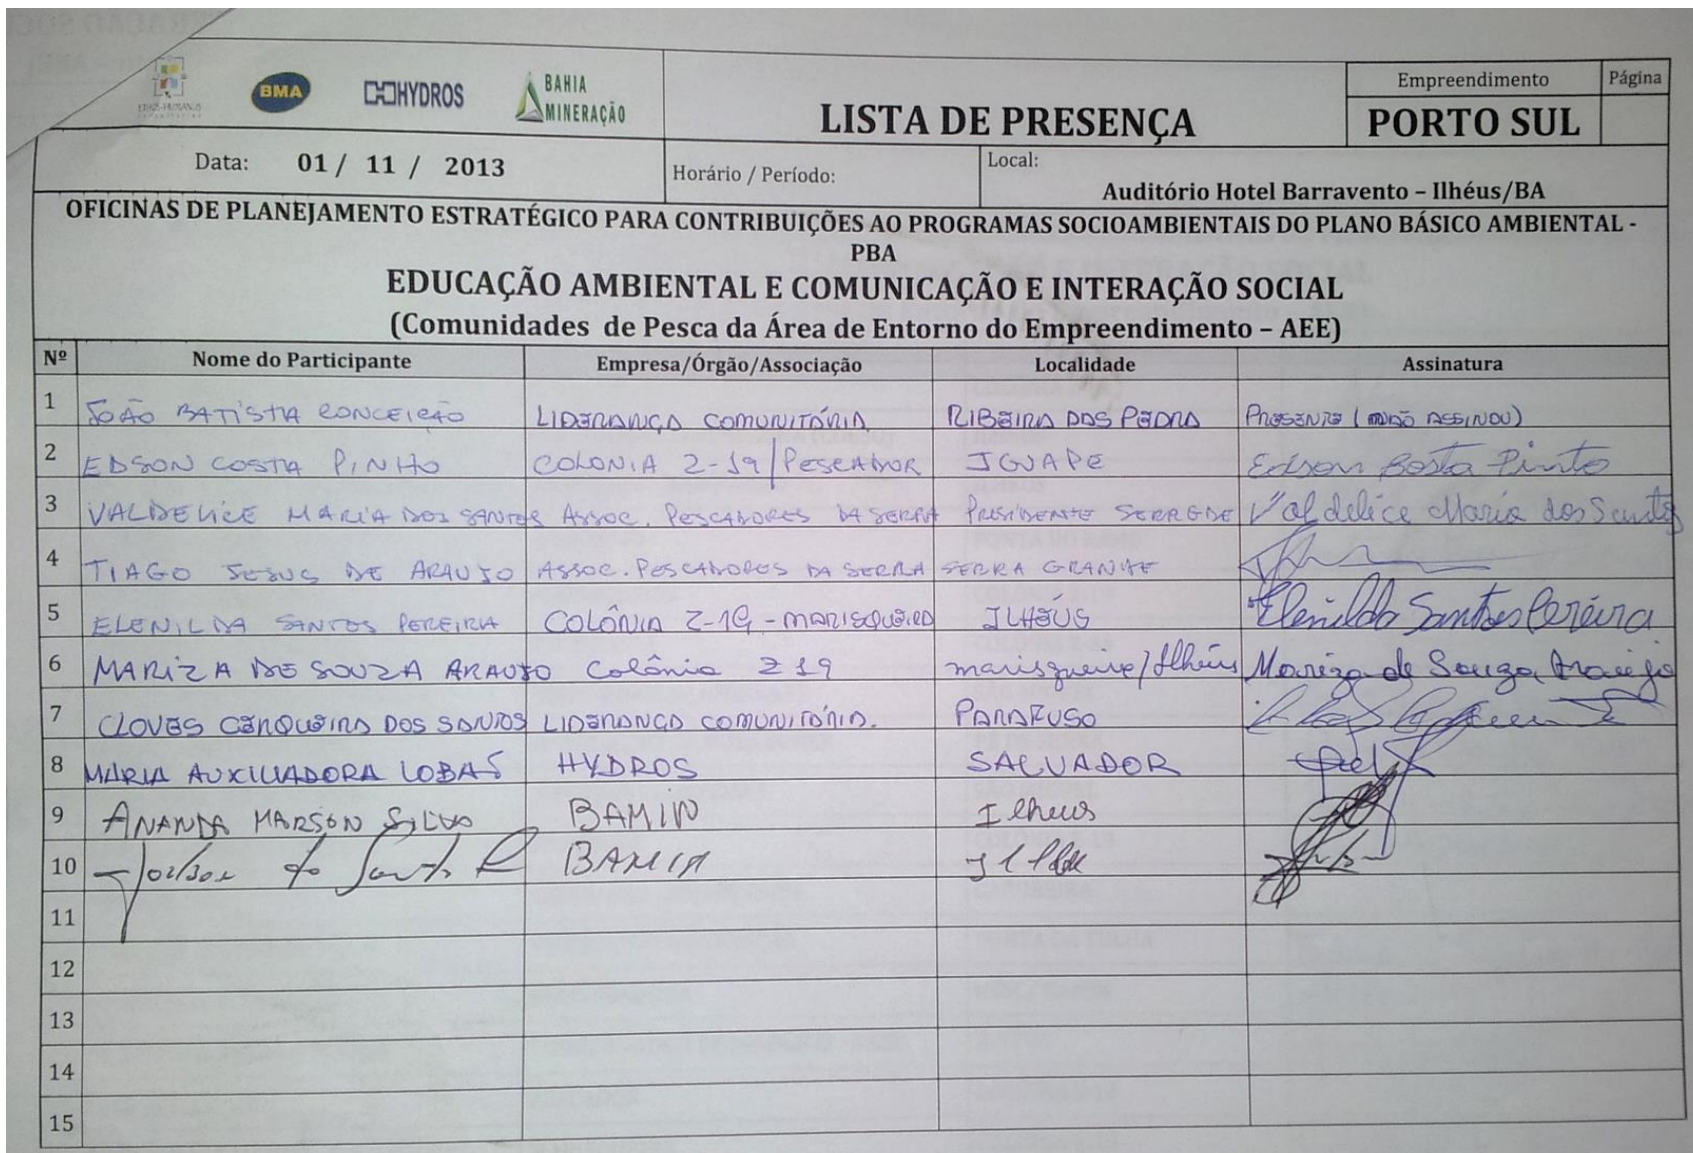 BMA HYDROS BAHIA MINERAÇÃO
LISTA DE PRESENÇA
Empreendimento
PORTO SUL
Página
Data: 01 / 11 / 2013
Horário / Período:
Local:
Auditório Hotel Barravento – Ilhéus/BA
OFICINAS DE PLANEJAMENTO ESTRATÉGICO PARA CONTRIBUIÇÕES AO PROGRAMAS SOCIOAMBIENTAIS DO PLANO BÁSICO AMBIENTAL -
PBA
EDUCAÇÃO AMBIENTAL E COMUNICAÇÃO E INTERAÇÃO SOCIAL
(Comunidades de Pesca da Área de Entorno do Empreendimento – AEE)
Nº Nome do Participante Empresa/Órgão/Associação Localidade Assinatura
1 JOÃO BATISTA CONCEIÇÃO LIDERANÇA COMUNITÁRIA RIBEIRA DAS PEDRA PRESENTE (NÃO ASSINOU)
2 EDSON COSTA PINHO COLONIA Z-19 / PESCADOR IGUAPE Edson Costa Pinto
3 VALDELICE MARIA DOS SANTOS ASSOC. PESCADORES DA SERRA PRESIDENTE SERRA GDE Valdelice Maria dos Santos
4 TIAGO JESUS DE ARAUJO ASSOC. PESCADORES DA SERRA SERRA GRANDE
5 ELENILDA SANTOS PEREIRA COLÔNIA Z-19 - MARISQUEIRA ILHÉUS Elenilda Santos Pereira
6 MARIZA DE SOUZA ARAUJO Colônia Z 19 marisqueira/Ilhéus Mariza de Souza Araujo
7 CLOVES CERQUEIRA DOS SANTOS LIDERANÇA COMUNITÁRIA. PARAFUSO
8 MARIA AUXILIADORA LOBAS HYDROS SALVADOR
9 ANANDA MARSON SILVA BAMIN Ilheus
10 BAMIN
11
12
13
14
15